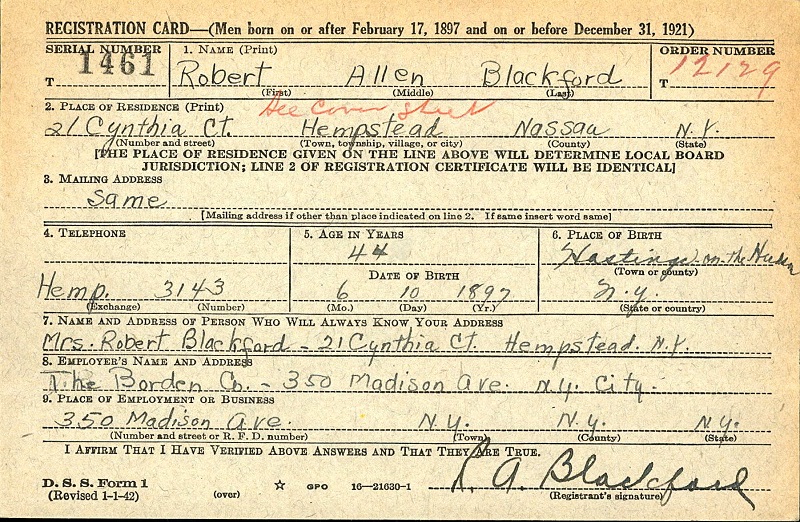 REGISTRATION CARD—(Men born on or after February 17, 1897 and on or before December 31, 1921)
SERIAL NUMBER 1. NAME (Print) ORDER NUMBER
T 1461 Robert Allen Blackford T 12129
(First) (Middle) (Last)
2. PLACE OF RESIDENCE (Print) See Cover Sheet
21 Cynthia Ct. Hempstead Nassau N.Y.
(Number and street) (Town, township, village, or city) (County) (State)
[THE PLACE OF RESIDENCE GIVEN ON THE LINE ABOVE WILL DETERMINE LOCAL BOARD
JURISDICTION; LINE 2 OF REGISTRATION CERTIFICATE WILL BE IDENTICAL]
3. MAILING ADDRESS
Same
[Mailing address if other than place indicated on line 2. If same insert word same]
4. TELEPHONE 5. AGE IN YEARS 6. PLACE OF BIRTH
44 Hastings on the Hudson
DATE OF BIRTH (Town or county)
Hemp. 3143 6 10 1897 N.Y.
(Exchange) (Number) (Mo.) (Day) (Yr.) (State or country)
7. NAME AND ADDRESS OF PERSON WHO WILL ALWAYS KNOW YOUR ADDRESS
Mrs. Robert Blackford - 21 Cynthia Ct. Hempstead. N.Y.
8. EMPLOYER'S NAME AND ADDRESS
The Borden Co. - 350 Madison Ave. N.Y. City.
9. PLACE OF EMPLOYMENT OR BUSINESS
350 Madison Ave. N.Y. N.Y. N.Y.
(Number and street or R. F. D. number) (Town) (County) (State)
I AFFIRM THAT I HAVE VERIFIED ABOVE ANSWERS AND THAT THEY ARE TRUE.
D. S. S. Form 1 R. A. Blackford
(Revised 1-1-42) (over) ☆ GPO 16—21630-1 (Registrant's signature)